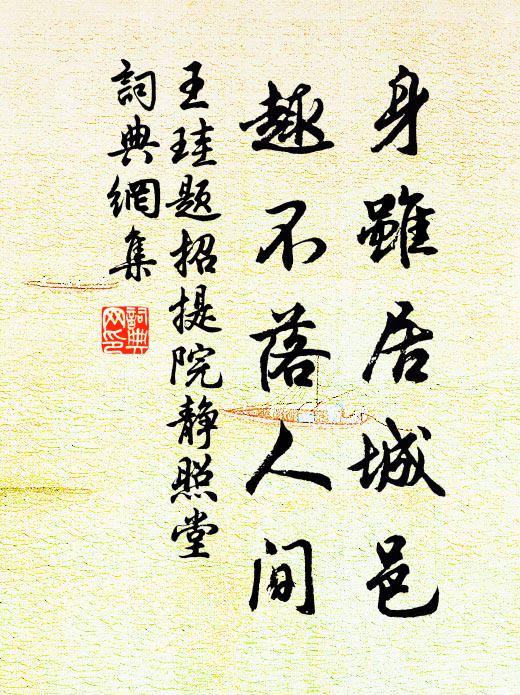 身雖居城邑
趣不落人間
王珪题招提院靜照堂
詞典網集
詞典
網印